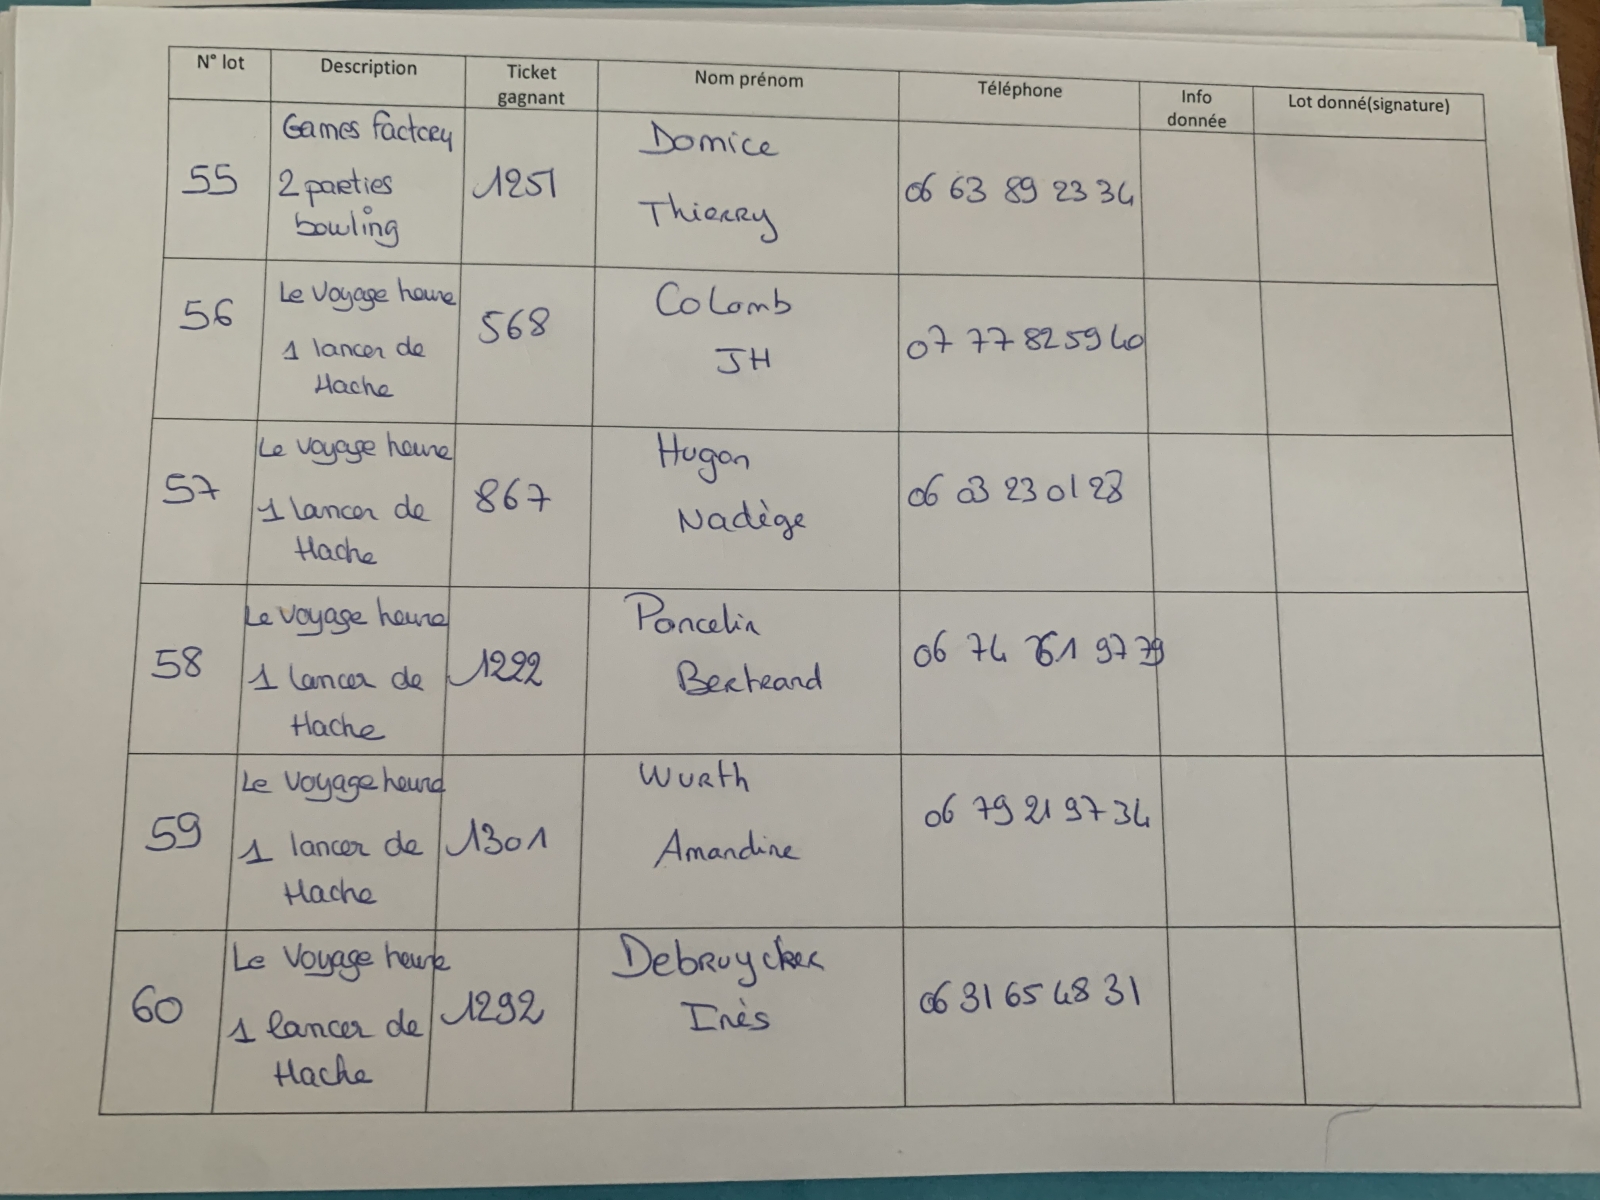 N° lot
Description
Ticket
gagnant
Nom prénom
Téléphone
Info
donnée
Lot donné(signature)
55
Games Factory
2 parties
bowling
1251
Domice
Thierry
06 63 89 23 34
56
Le Voyage heure
1 lancer de
Hache
568
Colomb
JH
07 77 82 59 40
57
Le voyage heure
1 lancer de
Hache
867
Hugon
Nadège
06 03 23 01 28
58
Le voyage heure
1 lancer de
Hache
1222
Poncelin
Bertrand
06 74 61 97 79
59
Le Voyage heure
1 lancer de
Hache
1301
Wurth
Amandine
06 79 21 97 34
60
Le Voyage heure
1 lancer de
Hache
1292
Debruycker
Inès
06 31 65 48 31